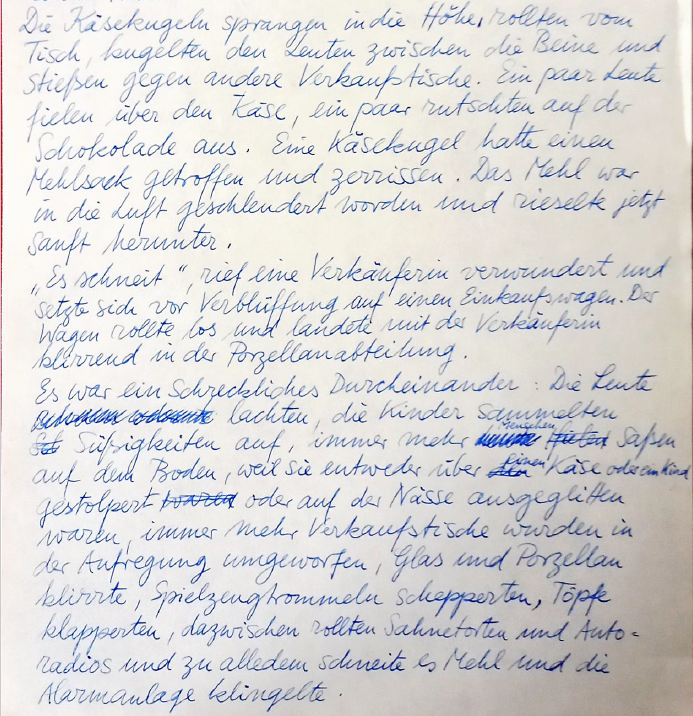 Die Käsekugeln sprangen in die Höhe, rollten vom
Tisch, kugelten den Leuten zwischen die Beine und
stießen gegen andere Verkaufstische. Ein paar Leute
fielen über den Käse, ein paar rutschten auf der
Schokolade aus. Eine Käsekugel hatte einen
Mehlsack getroffen und zerrissen. Das Mehl war
in die Luft geschleudert worden und rieselte jetzt
sanft herunter.
„Es schneit“, rief eine Verkäuferin verwundert und
setzte sich vor Verblüffung auf einen Einkaufswagen. Der
Wagen rollte los und landete mit der Verkäuferin
klirrend in der Porzellanabteilung.
Es war ein Schreckliches Durcheinander: Die Leute
lachten, die Kinder sammelten
Süßigkeiten auf, immer mehr Menschen saßen
auf dem Boden, weil sie entweder über einen Käse oder ein Kind
gestolpert waren oder auf der Nässe ausgeglitten
waren, immer mehr Verkaufstische wurden in
der Aufregung umgeworfen, Glas und Porzellan
klirrte, Spielzeugtrommeln schepperten, Töpfe
klapperten, dazwischen rollten Sahnetorten und Auto=
radios und zu alledem schneite es Mehl und die
Alarmanlage klingelte.